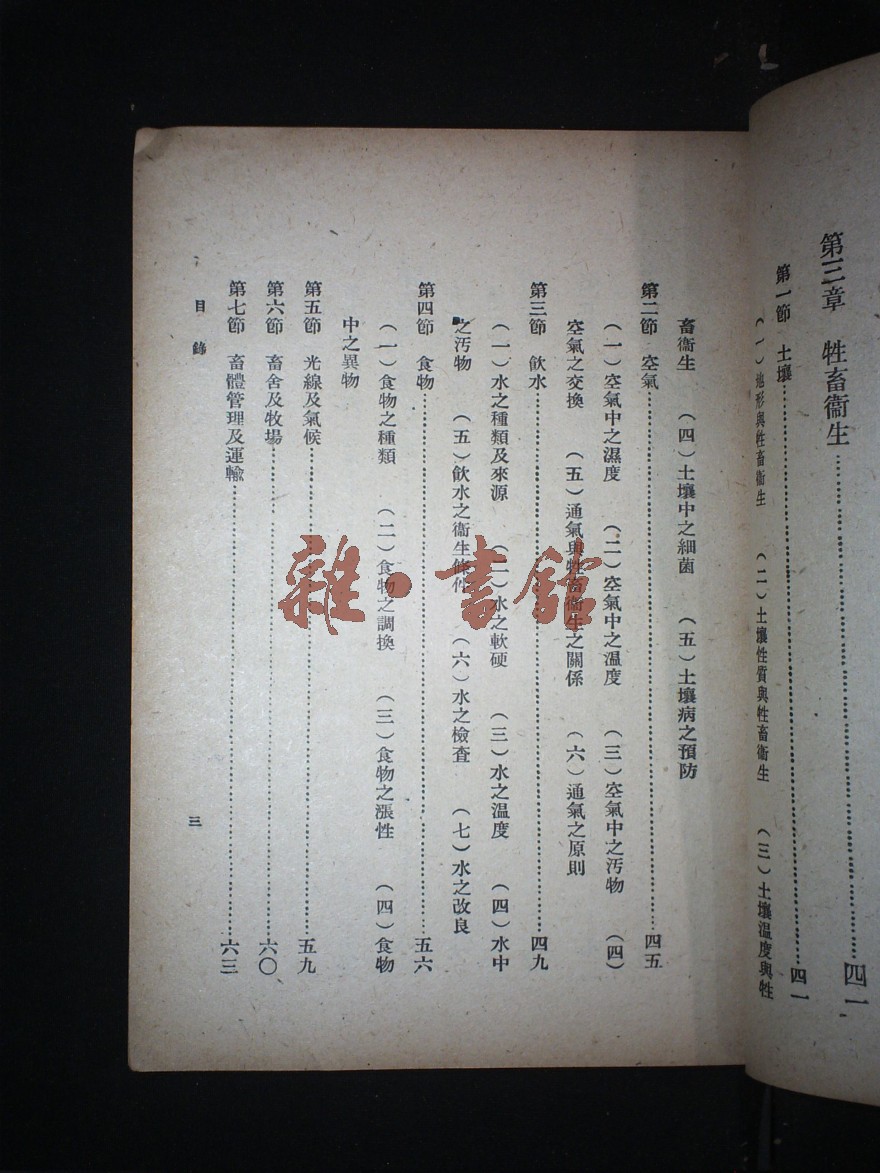 第三章　牲畜衞生……四一
第一節　土壤……四一
（一）地形與牲畜衞生　（二）土壤性質與牲畜衞生　（三）土壤温度與牲
畜衞生　（四）土壤中之細菌　（五）土壤病之預防
第二節　空氣……四五
（一）空氣中之濕度　（二）空氣中之温度　（三）空氣中之汚物　（四）
空氣之交換　（五）通氣與牲畜衞生之關係　（六）通氣之原則
第三節　飲水……四九
（一）水之種類及來源　（二）水之軟硬　（三）水之温度　（四）水中
之汚物　（五）飲水之衞生條件　（六）水之檢査　（七）水之改良
第四節　食物……五六
（一）食物之種類　（二）食物之調換　（三）食物之漲性　（四）食物
中之異物
第五節　光線及氣候……五九
第六節　畜舍及牧場……六〇
第七節　畜體管理及運輸……六三
目錄
三
雜·書館